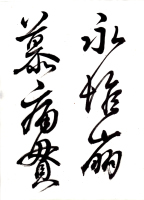 永惟崩
慕痛貫